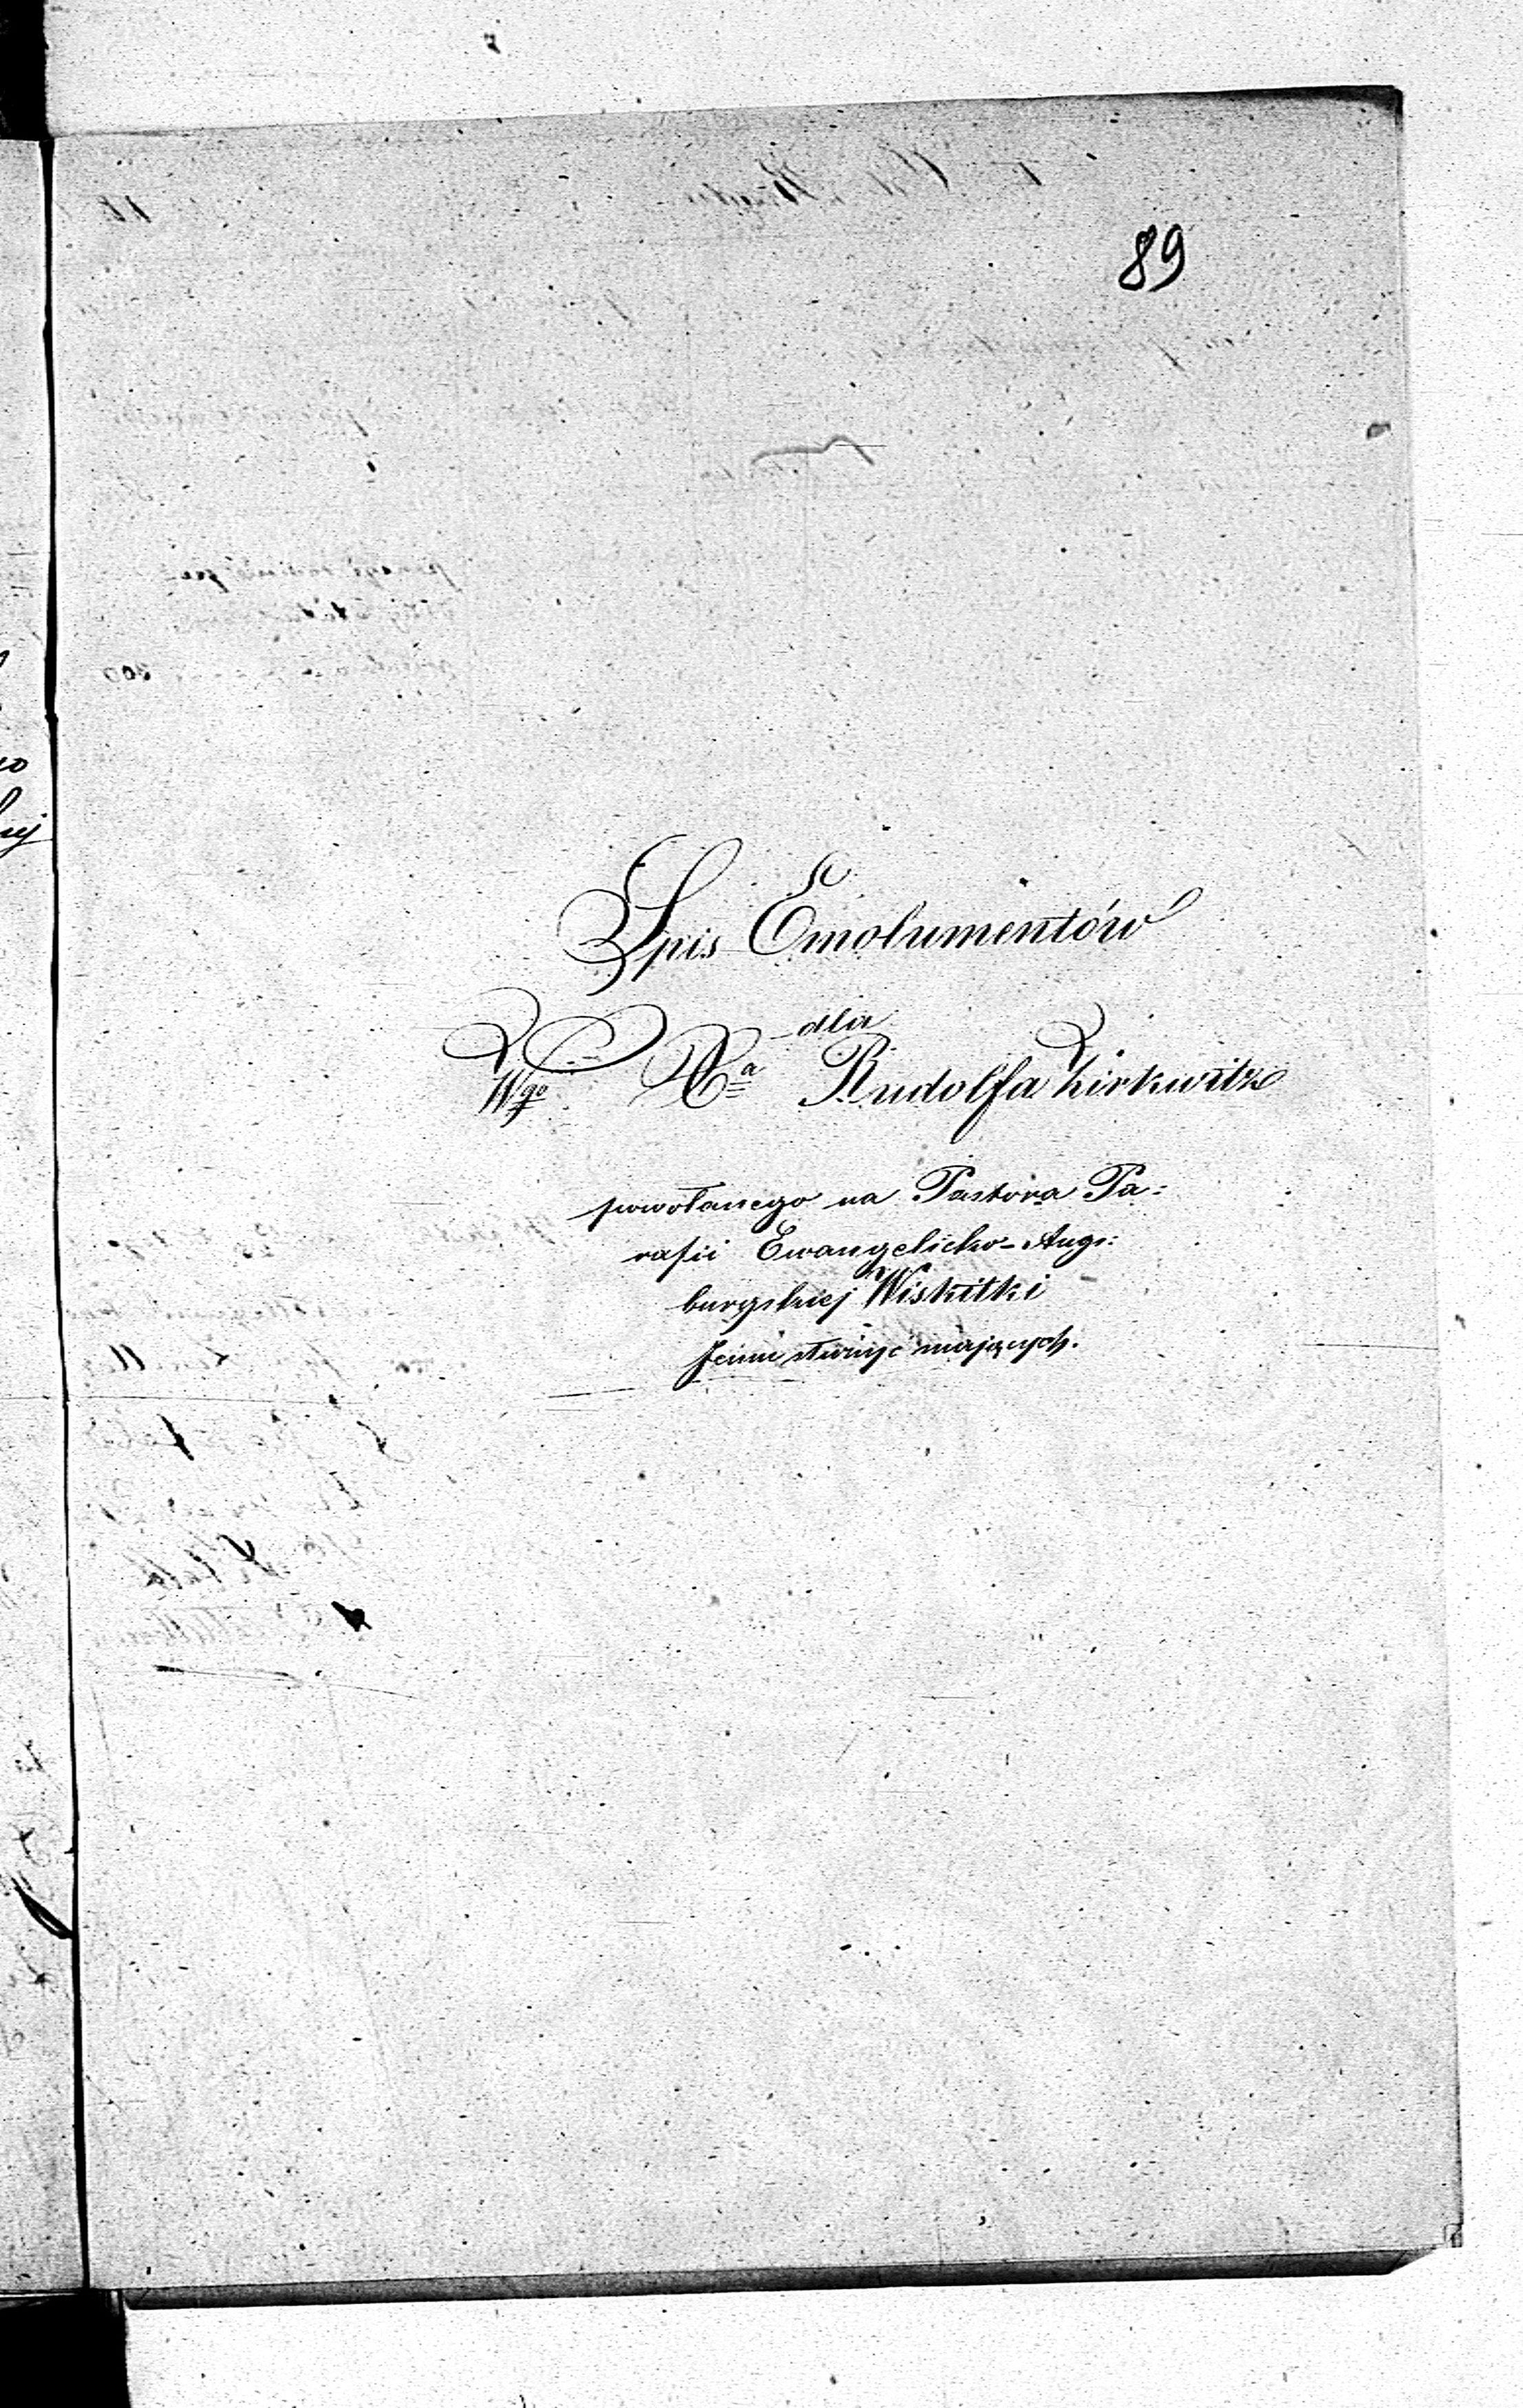 89
Spis Emolumentów
dla
Wgo Xa Rudolfa Zirkwitz
powołanego na Pastora Pa:
rafii Ewangelicko-Augs:
burgskiej Wiskitki
Jemu służyć mających.